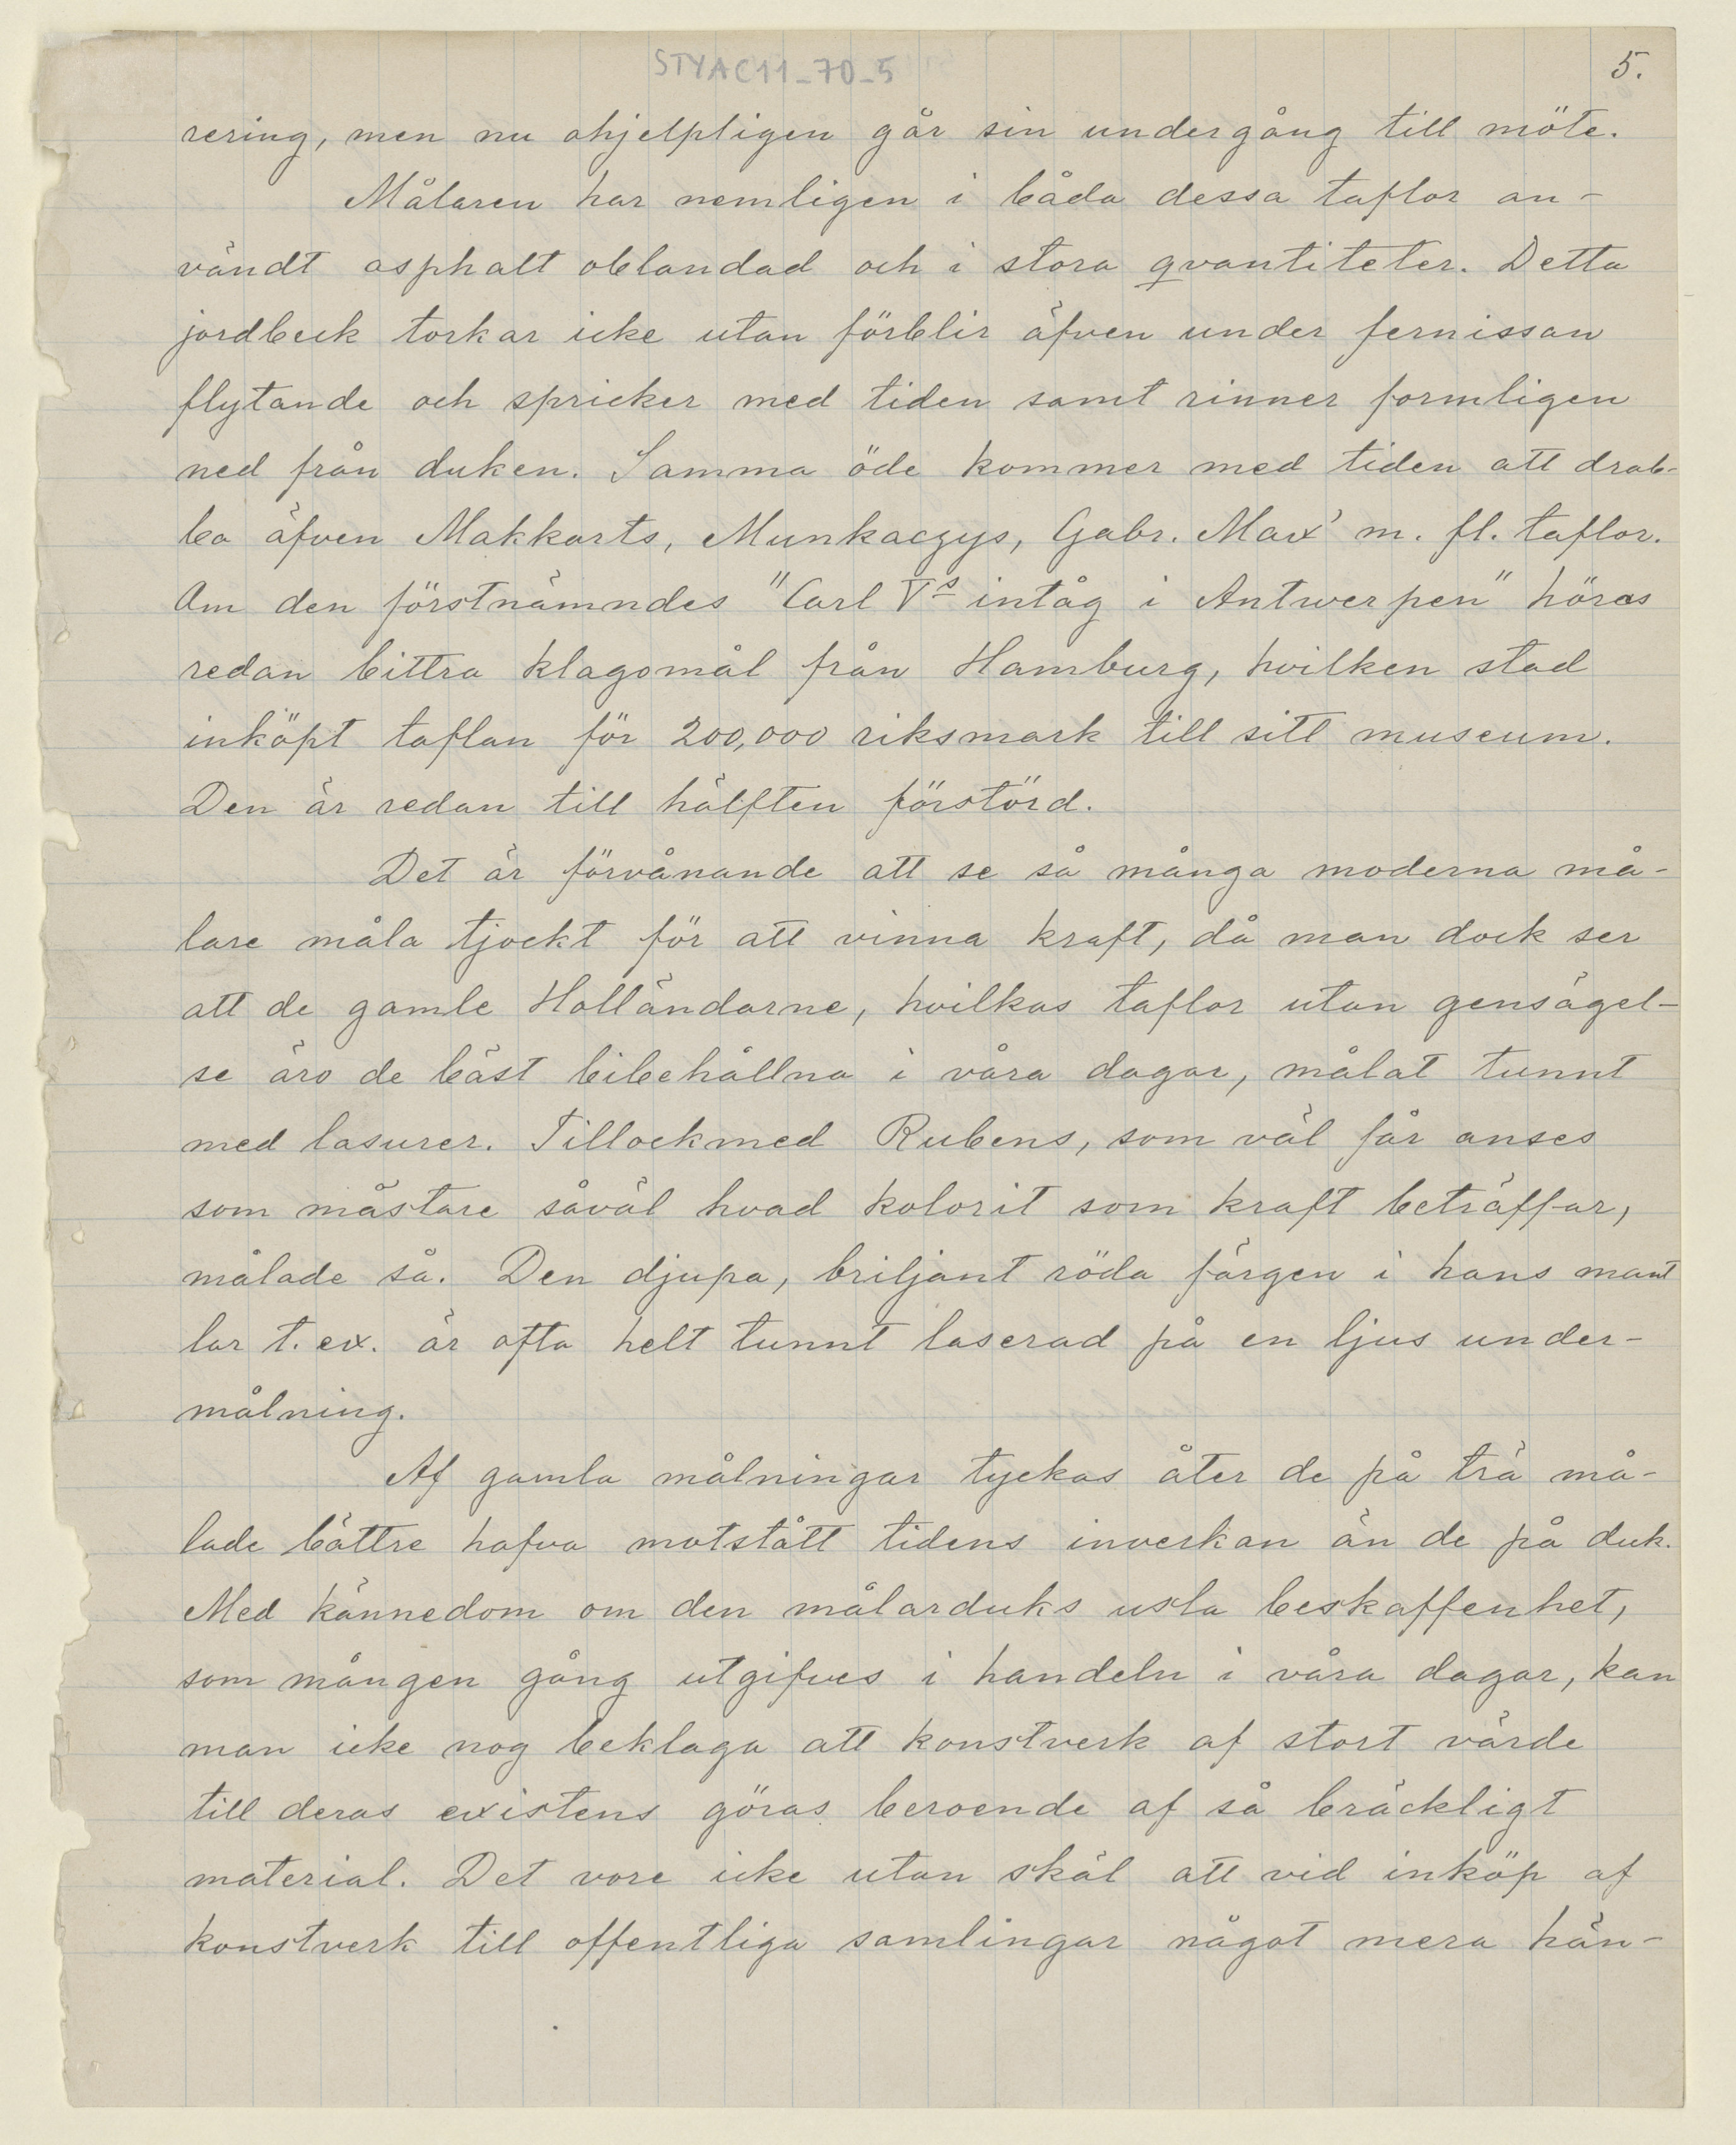 STYAC11_70_5
5.
rering, men nu ohjelpligen går sin undergång till möte.
Målaren har nemligen i båda dessa taflor an-
vändt asphalt oblandad och i stora qvantiteter. Detta
jordbeck torkar icke utan förblir äfven under fernissan
flytande och spricker med tiden samt rinner formligen
ned från duken. Samma öde kommer med tiden att drab-
ba äfven Makkarts, Munkaczys, Gabr. Max' m. fl. taflor.
Om den förstnämndes "Carl Vs intåg i Antwerpen" höras
redan bittra klagomål från Hamburg, hvilken stad
inköpt taflan för 200,000 riksmark till sitt museum.
Den är redan till hälften förstörd.
Det är förvånande att se så många moderna må-
lare måla tjockt för att vinna kraft, då man dock ser
att de gamle Holländarne, hvilkas taflor utan gensägel-
se äro de bäst bibehållna i våra dagar, målat tunnt
med lasurer. Tillochmed Rubens, som väl får anses
som mästare såväl hvad kolorit som kraft beträffar,
målade så. Den djupa, briljant röda färgen i hans mant
lar t. ex. är ofta helt tunnt laserad på en ljus under-
målning.
Af gamla målningar tyckas åter de på trä må-
lade bättre hafva motstått tidens inverkan än de på duk.
Med kännedom om den målarduks usla beskaffenhet,
som mången gång utgifves i handeln i våra dagar, kan
man icke nog beklaga att konstverk af stort värde
till deras existens göras beroende af så bräckligt
material. Det vore icke utan skäl att vid inköp af
konstverk till offentliga samlingar något mera hän-